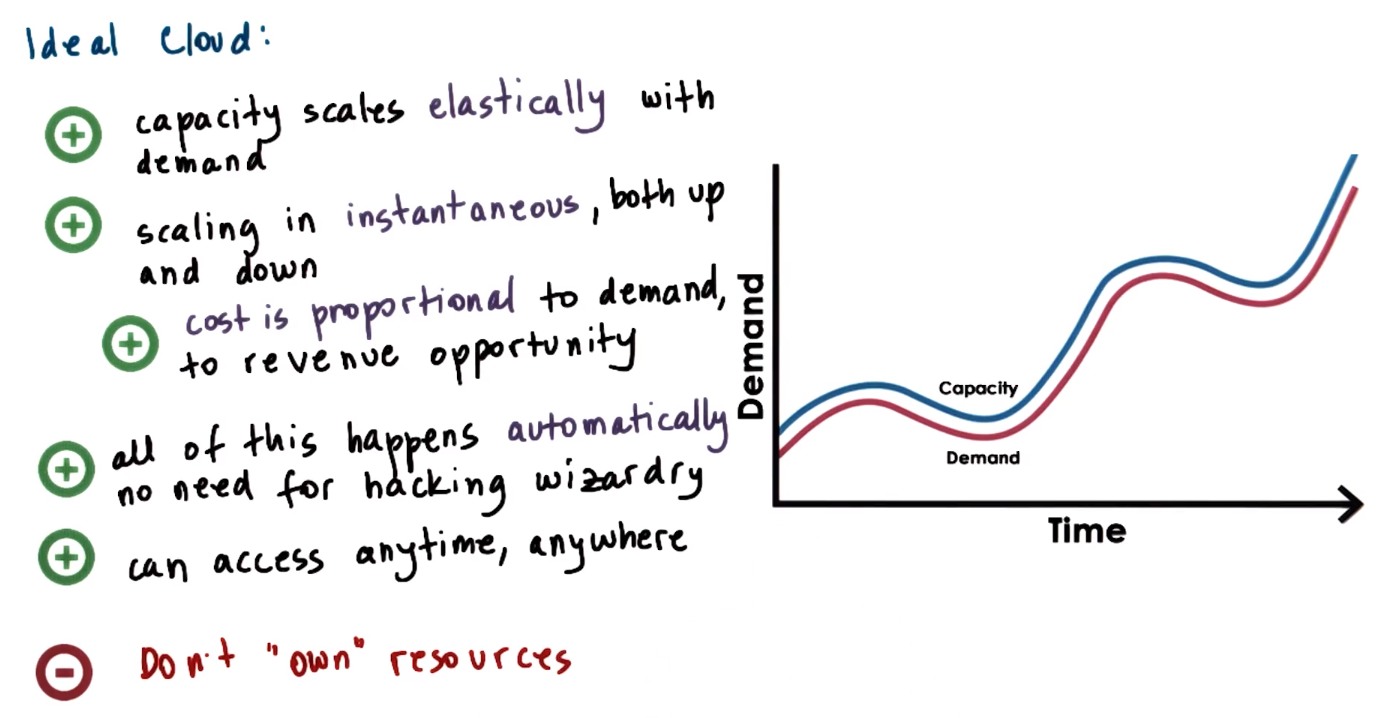 Ideal Cloud:
capacity scales elastically with
demand
scaling in instantaneous, both up
and down
cost is proportional to demand,
to revenue opportunity
all of this happens automatically
no need for hacking wizardry
can access anytime, anywhere
Don't "own" resources
Demand
Capacity
Demand
Time